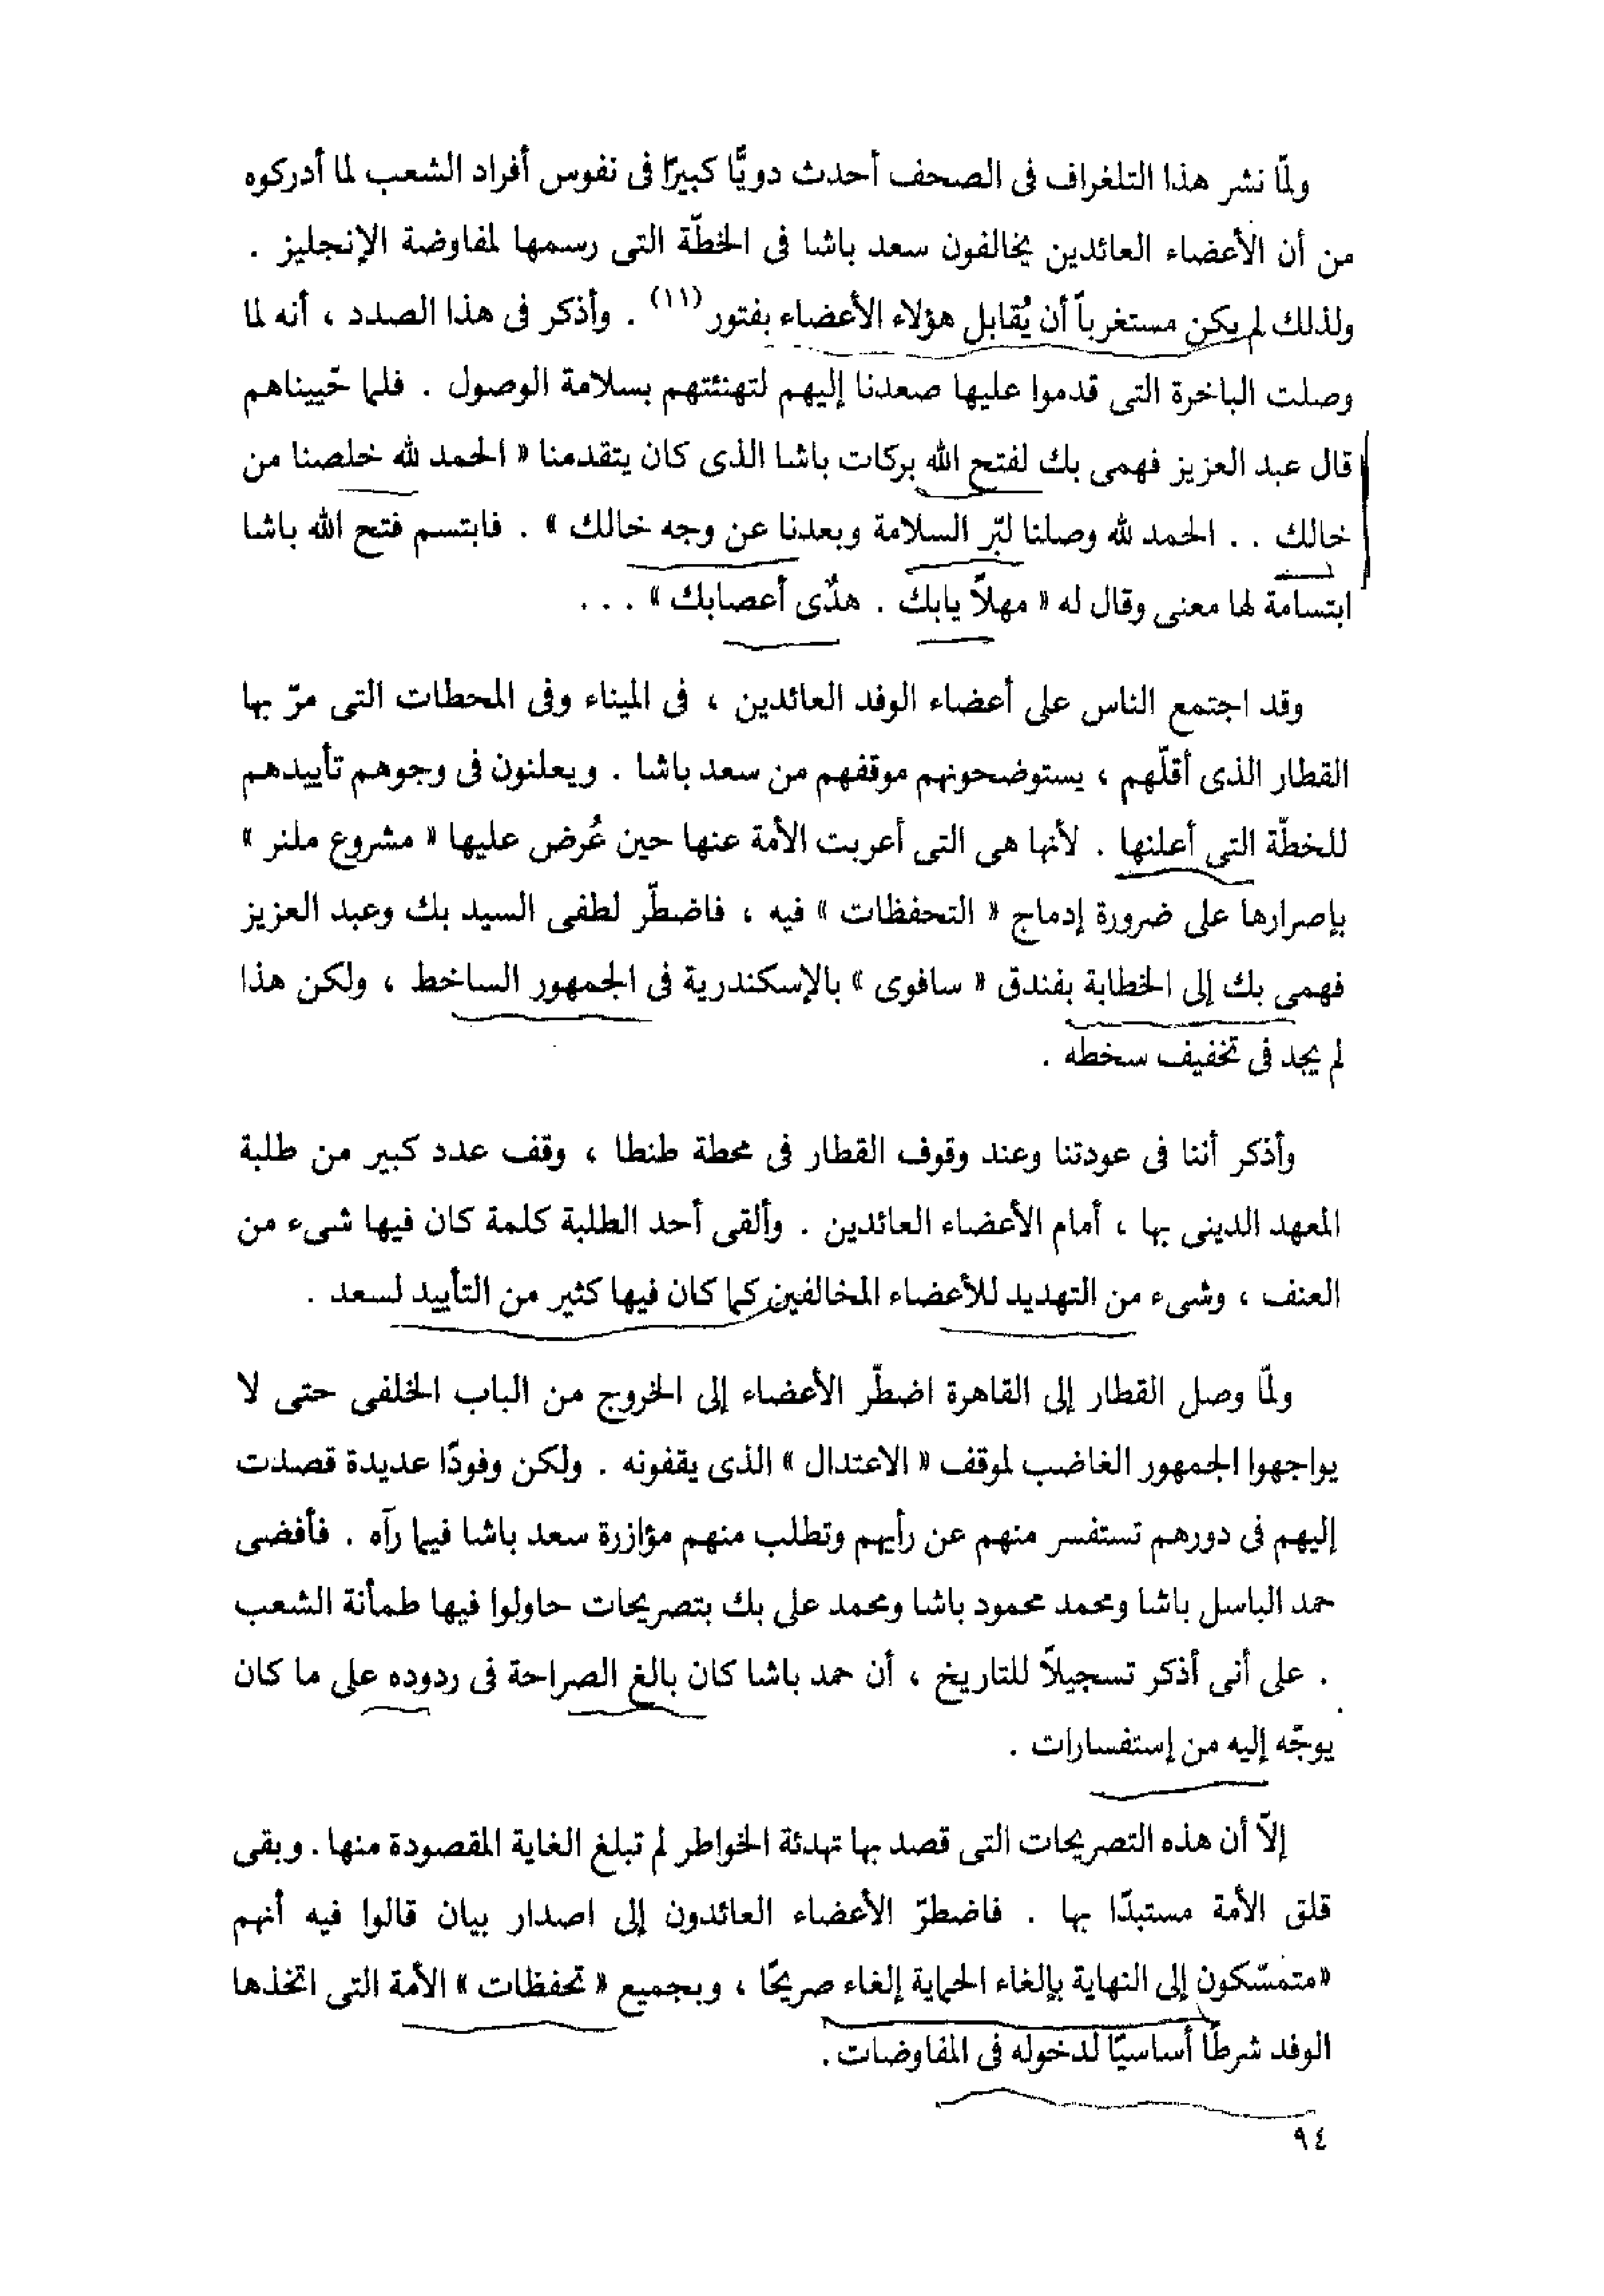 ولمّا نشر هذا التلغراف فى الصحف أحدث دويًّا كبيرًا فى نفوس أفراد الشعب لما أدركوه
من أن الأعضاء العائدين يخالفون سعد باشا فى الخطّة التى رسمها لمفاوضة الإنجليز .
ولذلك لم يكن مستغرباً أن يُقابل هؤلاء الأعضاء بفتور (١١) . وأذكر فى هذا الصدد ، أنه لما
وصلت الباخرة التى قدموا عليها صعدنا إليهم لتهنئتهم بسلامة الوصول . فلما حّييناهم
قال عبد العزيز فهمى بك لفتح الله بركات باشا الذى كان يتقدمنا « الحمد لله خلصنا من
خالك . . الحمد لله وصلنا لبّر السلامة وبعدنا عن وجه خالك » . فابتسم فتح الله باشا
ابتسامة لها معنى وقال له « مهلاً يابك . هدٌى أعصابك » . . .
وقد اجتمع الناس على أعضاء الوفد العائدين ، فى الميناء وفى المحطات التى مرّ بها
القطار الذى أقلّهم ، يستوضحونهم موقفهم من سعد باشا . ويعلنون فى وجوهم تأييدهم
للخطّة التى أعلنها . لأنها هى التى أعربت الأمة عنها حين عُرض عليها « مشروع ملنر »
بإصرارها على ضرورة إدماج « التحفظات » فيه ، فاضطّر لطفى السيد بك وعبد العزيز
فهمى بك إلى الخطابة بفندق « سافوى » بالإسكندرية فى الجمهور الساخط ، ولكن هذا
لم يجد فى تخفيف سخطه .
وأذكر أننا فى عودتنا وعند وقوف القطار فى محطة طنطا ، وقف عدد كبير من طلبة
المعهد الدينى بها ، أمام الأعضاء العائدين . وألقى أحد الطلبة كلمة كان فيها شىء من
العنف ، وشىء من التهديد للأعضاء المخالفين كما كان فيها كثير من التأييد لسعد .
ولمّا وصل القطار إلى القاهرة اضطّر الأعضاء إلى الخروج من الباب الخلفى حتى لا
يواجهوا الجمهور الغاضب لموقف « الاعتدال » الذى يقفونه . ولكن وفودًا عديدة قصدت
إليهم فى دورهم تستفسر منهم عن رأيهم وتطلب منهم مؤازرة سعد باشا فيما رآه . فأفضى
حمد الباسل باشا ومحمد محمود باشا ومحمد على بك بتصريحات حاولوا فيها طمأنة الشعب
. على أنى أذكر تسجيلاً للتاريخ ، أن حمد باشا كان بالغ الصراحة فى ردوده على ما كان
يوجّه إليه من إستفسارات .
إلاّ أن هذه التصريحات التى قصد بها تهدئة الخواطر لم تبلغ الغاية المقصودة منها . وبقى
قلق الأمة مستبدًّا بها . فاضطرّ الأعضاء العائدون إلى اصدار بيان قالوا فيه أنهم
«متمسّكون إلى النهاية بإلغاء الحماية إلغاء صريحًا ، وبجميع « تحفظات » الأمة التى اتخذها
الوفد شرطًا أساسيًا لدخوله فى المفاوضات .
٩٤